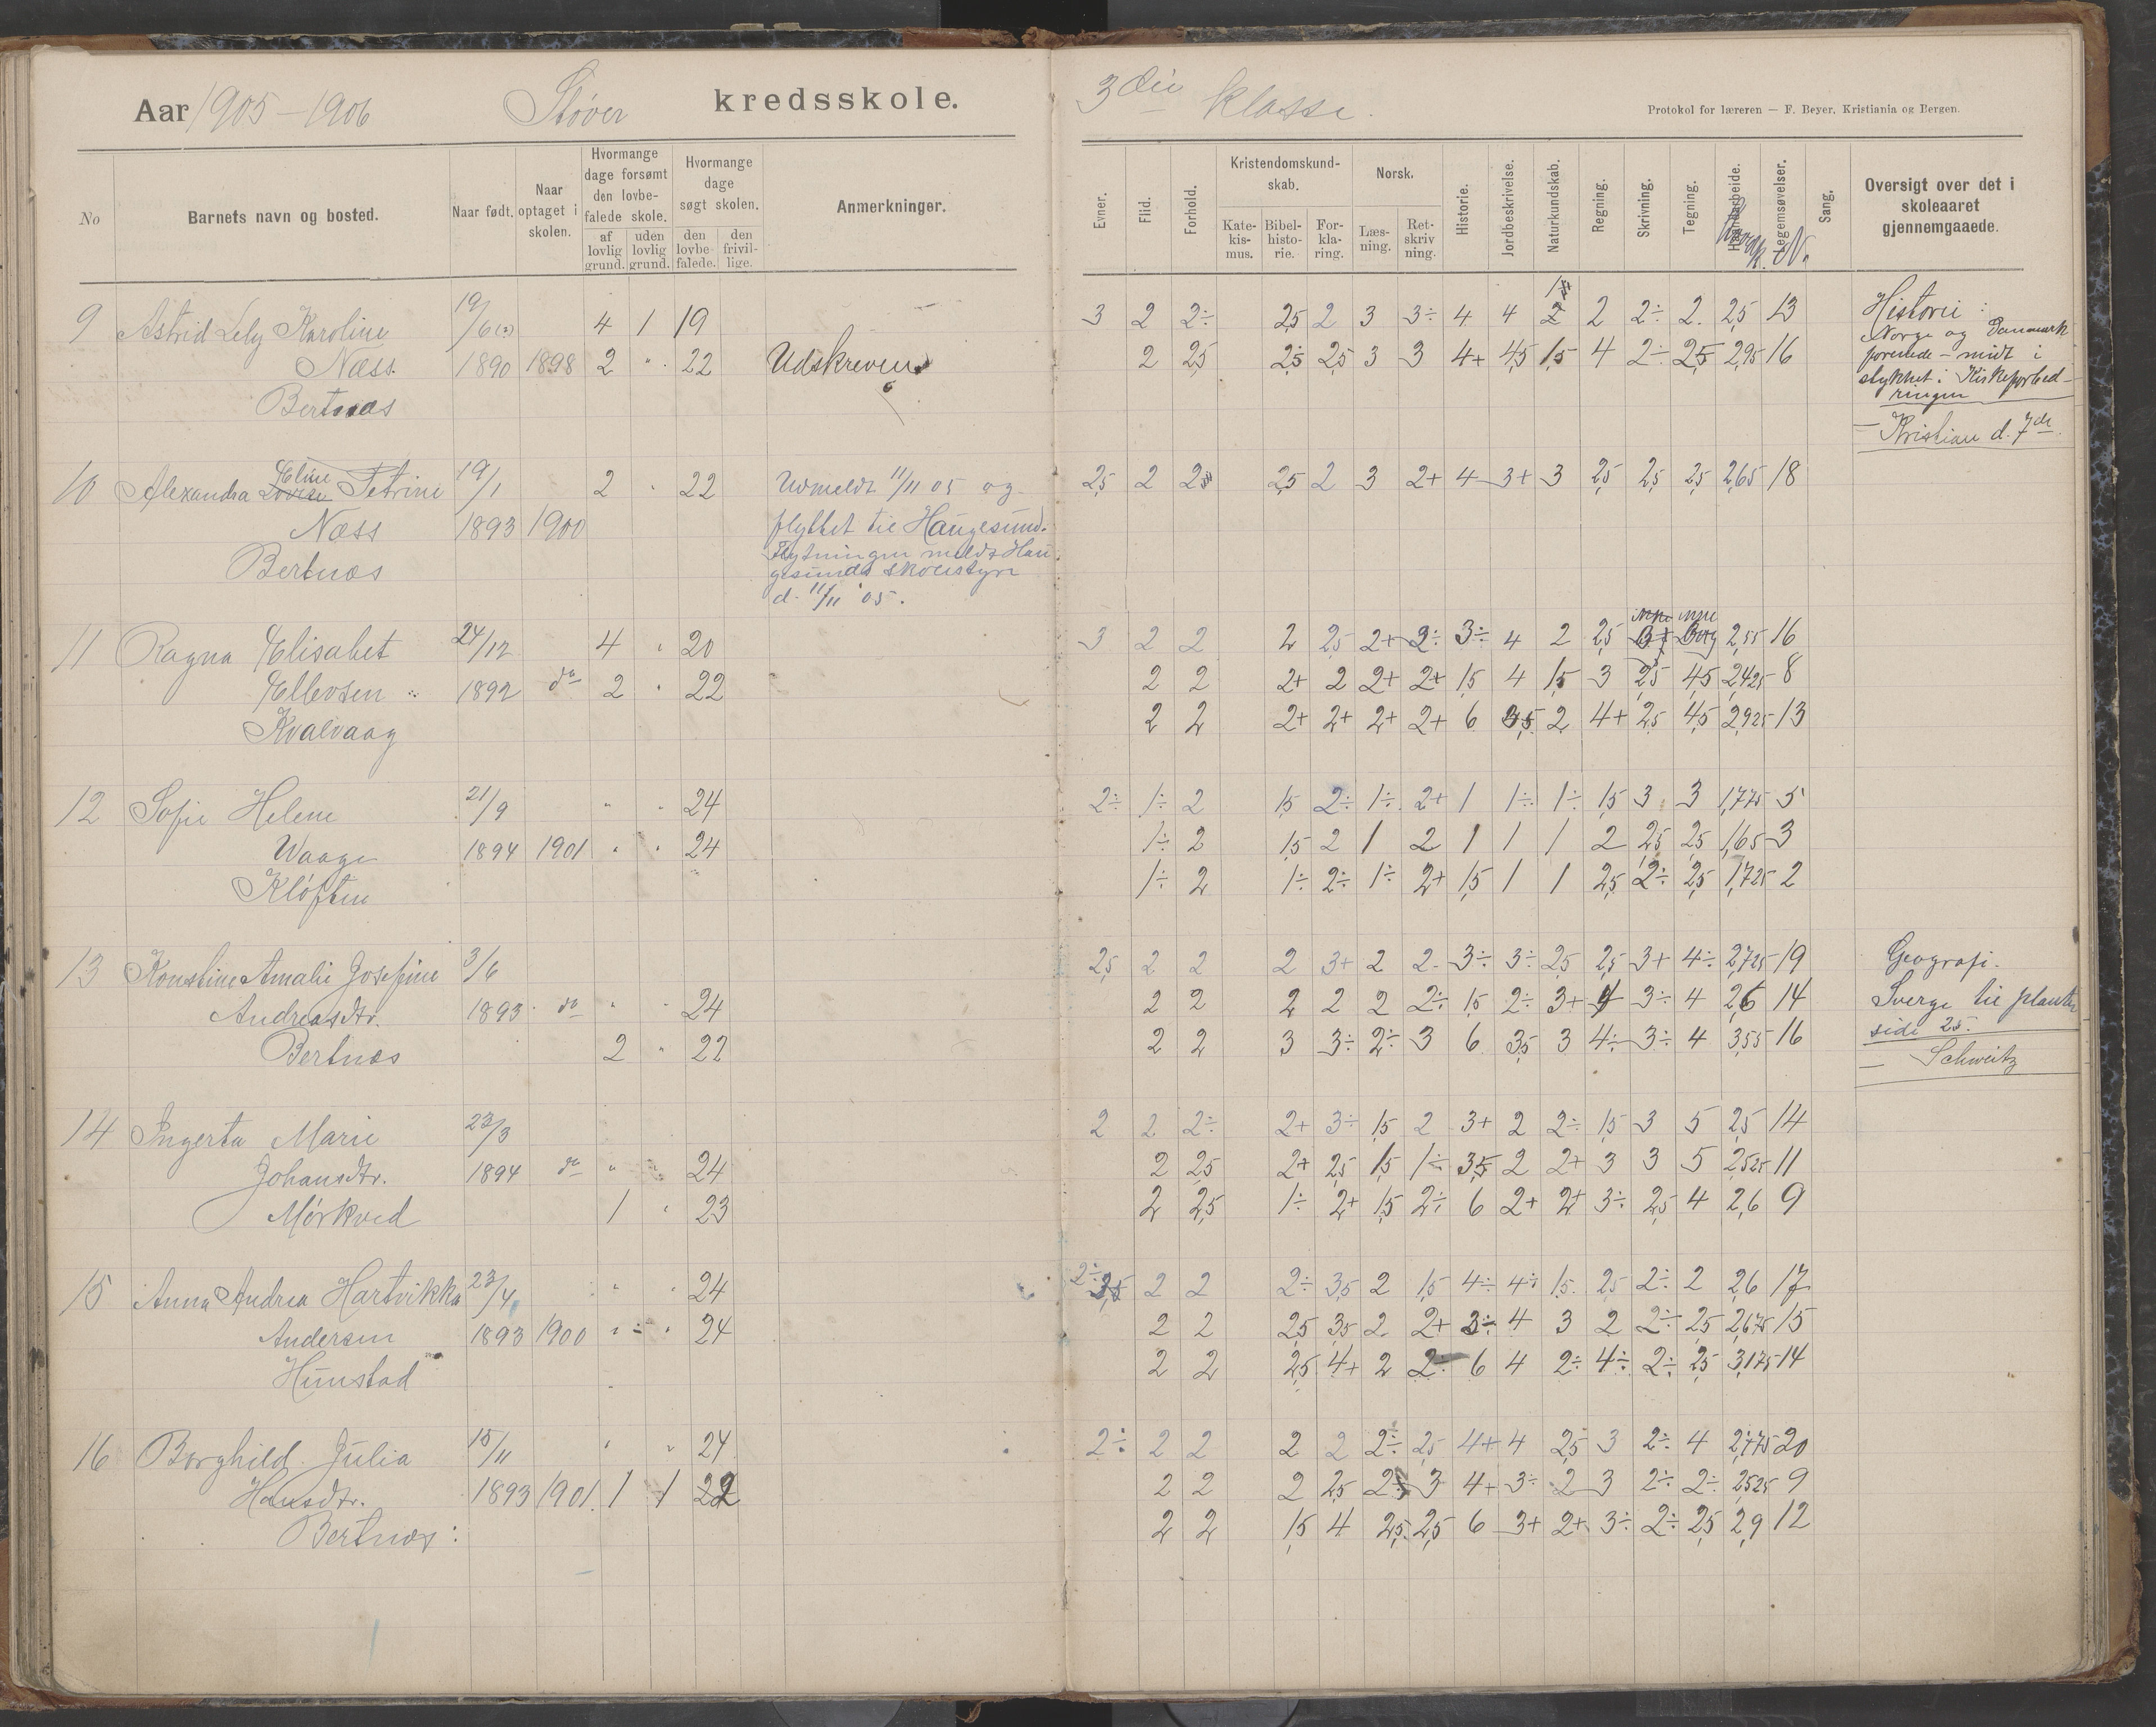 Aar 1905-1906 Støver kredsskole.
No
Barnets navn og bosted.
Naar født.
Naar optaget i skolen.
Hvormange dage forsømt den lovbefalede skole.
af lovlig grund.
uden lovlig grund.
Hvormange dage søgt skolen.
den lovbefalede.
den frivillige.
Anmerkninger.
9 Astrid Lely Karoline 19/6 4 1 19
Næss 1890 1898 2 " 22 Udskreven
Bertnæs
10 Alexandra Eline Petrine 19/1 2 " 22 Udmeldt 11/11 05 og
Næss 1893 1900 flyttet til Haugesund.
Flytningen meldt Hau-
Bertnæs gesunds skolestyre
d. 11/11 05.
11 Ragna Elisabet 24/12 4 " 20
Ellevsen 1892 do 2 " 22
Kvalvaag
12 Sofie Helene 21/9 " " 24
Waage 1894 1901 " " 24
Kløften
13 Konstine Amalie Josefine 3/6
Andreasdtr. 1893 do " " 24
Bertnæs 2 " 22
14 Ingerta Marie 23/3
Johansdtr. 1894 do " " 24
Mørkved 1 " 23
15 Anna Andrea Hartvikka 23/4 " " 24
Andersen 1893 1900 " " 24
Hunstad
16 Borghild Julia 15/11 " " 24
Hansdtr. 1893 1901 1 1 22
Bertnæs
3die klasse.
Protokol for læreren — F. Beyer, Kristiania og Bergen.
Evner.
Flid.
Forhold.
Kristendomskundskab.
Katekismus.
Bibelhistorie.
Forklaring.
Norsk.
Læsning.
Retskrivning.
Historie.
Jordbeskrivelse.
Naturkundskab.
Regning.
Skrivning.
Tegning.
Haandarbeide.
Legemsøvelser.
N.
Sang.
Oversigt over det i skoleaaret gjennemgaaede.
3 2 2÷ 2,5 2 3 3÷ 4 4 2 2÷ 2 2,5 13
2 2,5 2,5 2,5 3 3 4+ 4,5 1,5 4 2÷ 2,5 2,95 16
Historie:
Norge og Danmark
forenede - midt i
stykket: Kirkeforbed-
ringen
— Kristian d. 7de
2,5 2 2 2,5 2 3 2+ 4 3+ 3 2,5 2,5 2,5 2,65 18
3 2 2 2 2,5 2+ 2÷ 3÷ 4 2 2,5 2,55 16
2 2 2+ 2 2+ 2+ 1,5 4 1,5 3 2,5 4,5 2,425 8
2 2 2+ 2+ 2+ 2+ 6 2 4+ 2,5 4,5 2,925 13
2÷ 1÷ 2 1,5 2÷ 1÷ 2+ 1 1÷ 1÷ 1,5 3 3 1,775 5
1÷ 2 1,5 2 1 2 1 1 1 2 2,5 2,5 1,65 3
1÷ 2 1÷ 2÷ 1÷ 2+ 1,5 1 1 2,5 2÷ 2,5 1,725 2
2,5 2 2 2 3+ 2 2- 3÷ 3÷ 2,5 2,5 3+ 4÷ 2,725 19
2 2 2 2 2 2÷ 1,5 2÷ 3+ 4 3÷ 4 2,6 14
2 2 3 3÷ 2÷ 3 6 3,5 3 4÷ 3÷ 4 3,55 16
Geografi.
Sverge til planter
side 25.
— Schweitz
2 2 2÷ 2+ 3÷ 1,5 2 3+ 2 2÷ 1,5 3 5 2,5 14
2 2,5 2+ 2,5 1,5 1÷ 3,5 2 2+ 3 3 5 2,525 11
2 2,5 1÷ 2+ 1,5 2÷ 6 2+ 2+ 3÷ 2,5 4 2,6 9
2÷ 2 2 2÷ 3,5 2 1,5 4÷ 4÷ 1,5 2,5 2÷ 2 2,6 17
2 2 2,5 3,5 2 2+ 3÷ 4 3 2 2÷ 2,5 2,675 15
2 2 2,5 4+ 2 2÷ 6 4 2÷ 4÷ 2÷ 2,5 3,175 14
2÷ 2 2 2 2 2÷ 2,5 4+ 4 2,5 3 2÷ 4 2,775 20
2 2 2 2,5 2÷ 3 4+ 3÷ 2 3 2÷ 2÷ 2,525 9
2 2 1,5 4 2,5 2,5 6 3+ 2+ 3÷ 2÷ 2,5 2,9 12